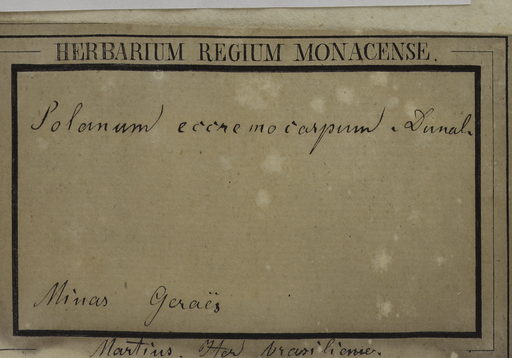 HERBARIUM REGIUM MONACENSE.
Solanum eccremocarpum. Dunal.
Minas Geraës
Martius. Her brasiliense.